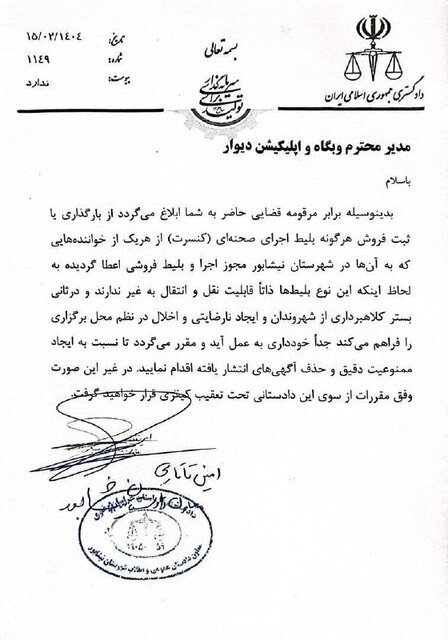 بسمه تعالی
تاریخ: ۱۵/۰۳/۱۴۰۴
شماره: ۱۱۴۹
پیوست: ندارد
دادگستری جمهوری اسلامی ایران
سرمایه‌گذاری برای تولید
مدیر محترم وبگاه و اپلیکیشن دیوار
باسلام
بدینوسیله برابر مرقومه قضایی حاضر به شما ابلاغ می‌گردد از بارگذاری یا
ثبت فروش هرگونه بلیط اجرای صحنه‌ای (کنسرت) از هریک از خواننده‌هایی
که به آن‌ها در شهرستان نیشابور مجوز اجرا و بلیط فروشی اعطا گردیده به
لحاظ اینکه این نوع بلیط‌ها ذاتاً قابلیت نقل و انتقال به غیر ندارند و درثانی
بستر کلاهبرداری از شهروندان و ایجاد نارضایتی و اخلال در نظم محل برگزاری
را فراهم می‌کند جداً خودداری به عمل آید و مقرر می‌گردد تا نسبت به ایجاد
ممنوعیت دقیق و حذف آگهی‌های انتشار یافته اقدام نمایید. در غیر این صورت
وفق مقررات از سوی این دادستانی تحت تعقیب کیفری قرار خواهید گرفت.
معاون دادستان عمومی و انقلاب شهرستان نیشابور